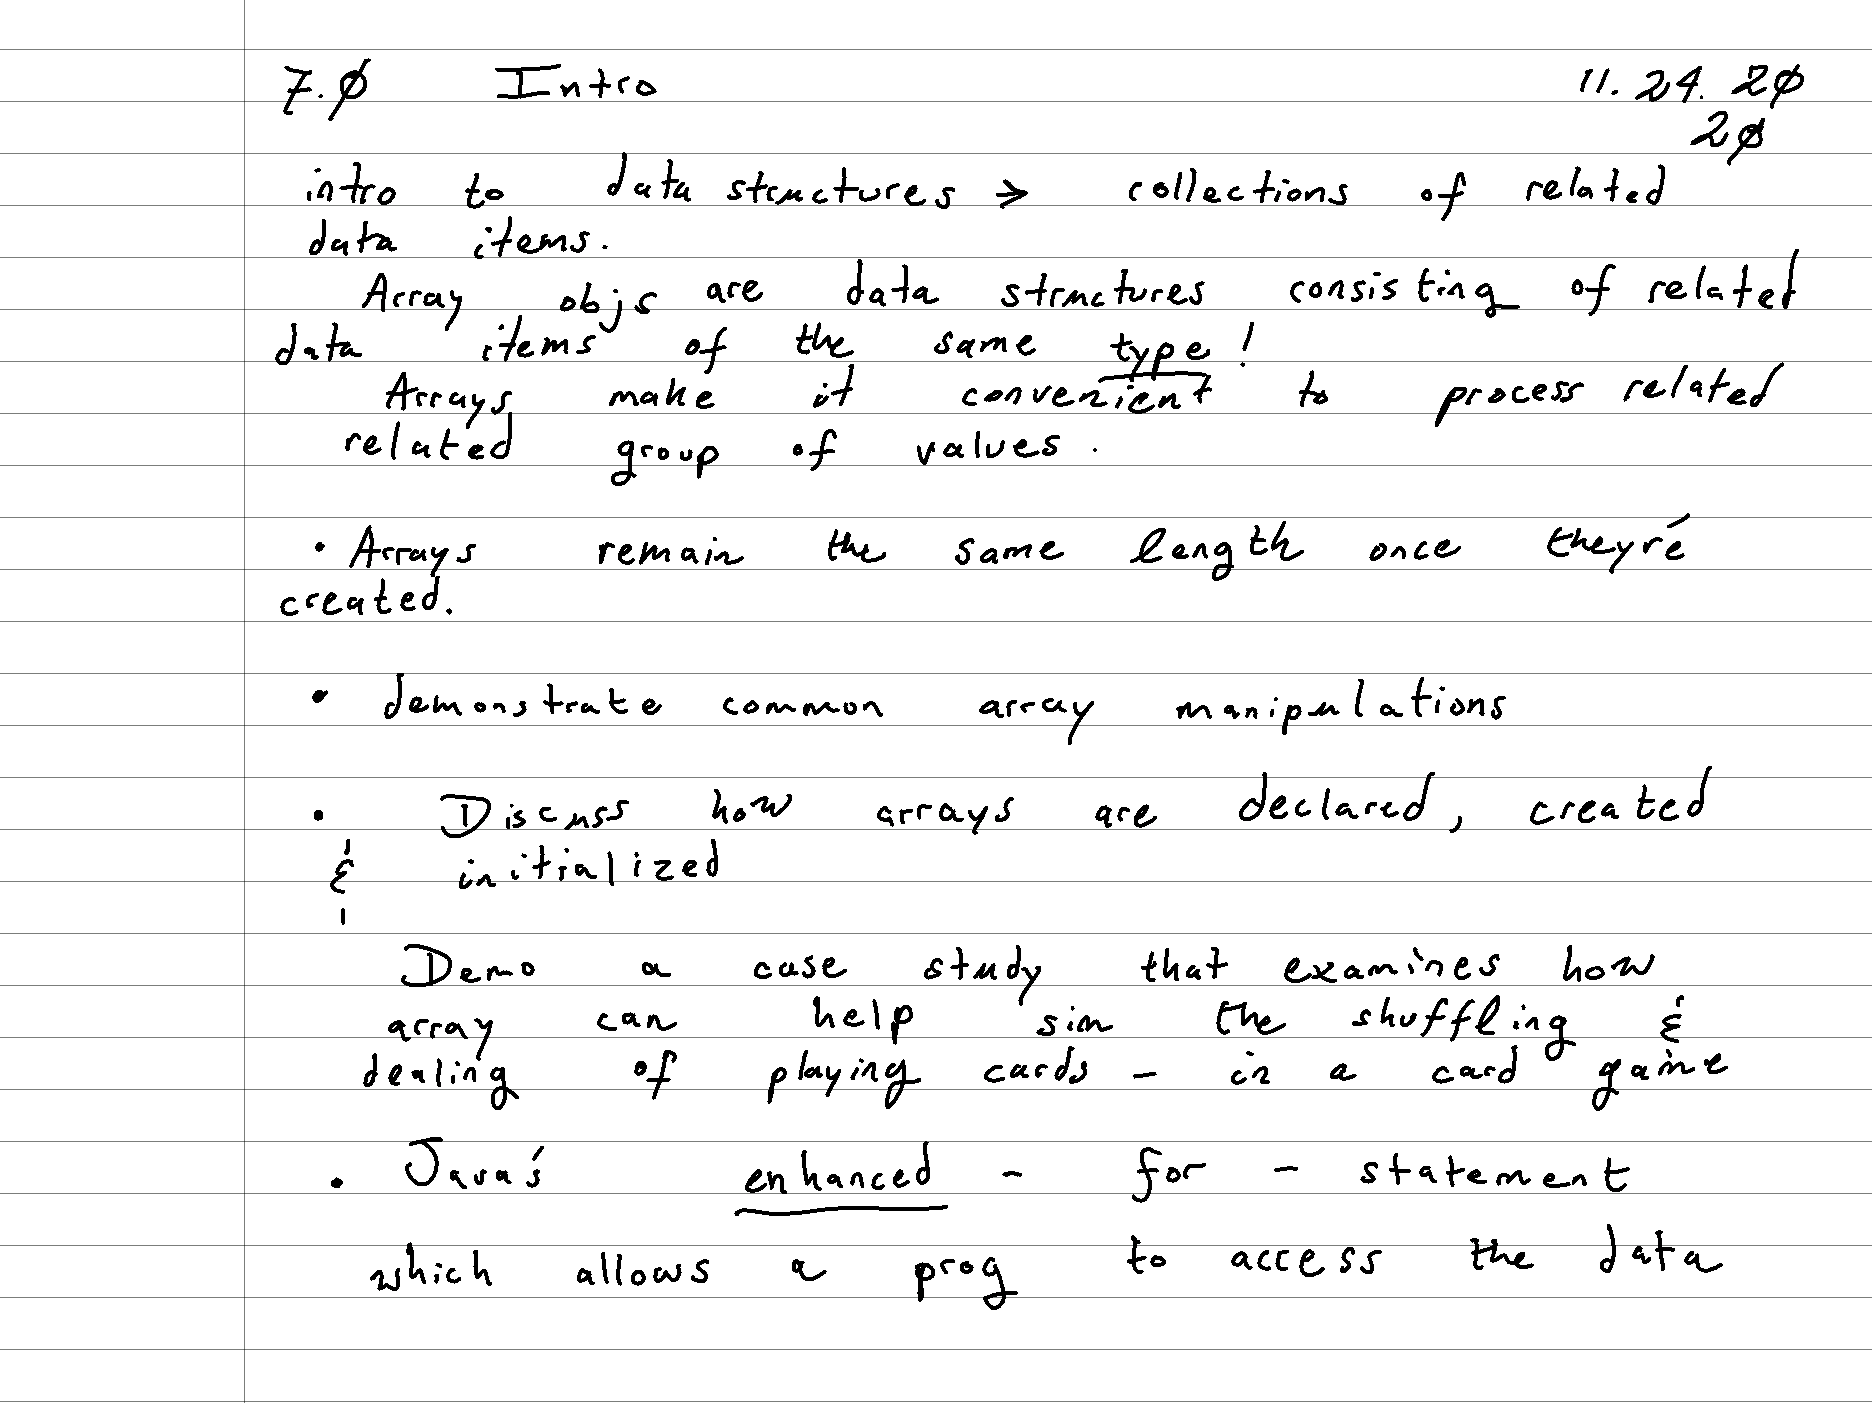 7.0 Intro 11.24.20
20
intro to data structures → collections of related
data items.
Array objs are data structures consisting of related
data items of the same type!
Arrays make it convenient to process related
related group of values.
• Arrays remain the same length once they're
created.
• demonstrate common array manipulations
• Discuss how arrays are declared, created
& initialized
Demo a case study that examines how
array can help sim the shuffling &
dealing of playing cards - in a card game
• Java's enhanced - for - statement
which allows a prog to access the data